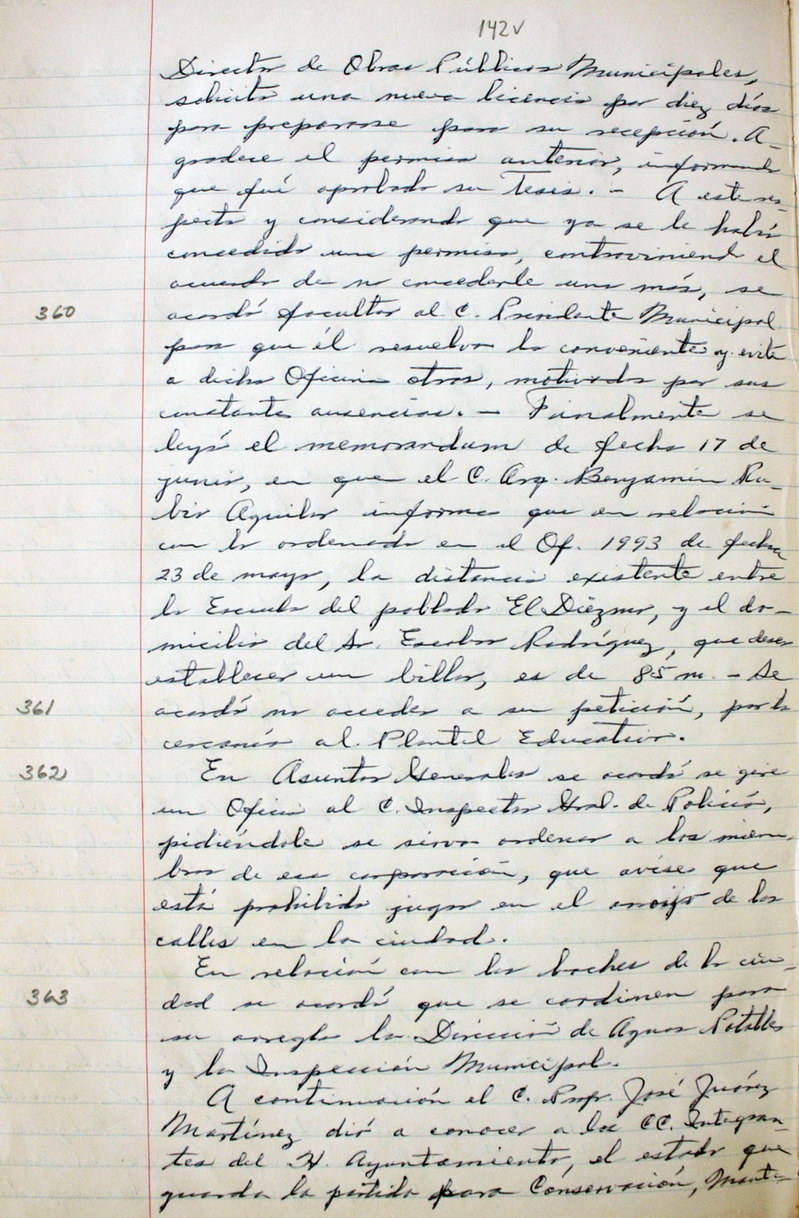 142v
Director de Obras Públicas Municipales,
solicita una nueva licencia por diez días
para prepararse para su recepción. A-
gradece el permiso anterior, informando
que fué aprobada su Tesis. - A este res-
pecto y considerando que ya se le había
concedido un permiso, contraviniendo el
acuerdo de no concederle uno más, se
360 acordó facultar al C. Presidente Municipal
para que él resuelva lo conveniente y evite
a dicha Oficina otros, motivados por sus
constantes ausencias. - Finalmente se
leyó el memorandum de fecha 17 de
junio, en que el C. Arq. Benjamín Ru-
bio Aguilar informa que en relación
con lo ordenado en el Of. 1993 de fecha
23 de mayo, la distancia existente entre
la Escuela del poblado El Diézmo, y el do-
micilio del Sr. Escobar Rodríguez, que desea
establecer un billar, es de 85 m. - Se
361 acordó no acceder a su petición, por la
cercanía al Plantel Educativo.
362 En Asuntos Generales se acordó se gire
un Oficio al C. Inspector Gral. de Policía,
pidiéndole se sirva ordenar a los miem-
bros de esa corporación, que avise que
está prohibido jugar en el arroyo de las
calles en la ciudad.
En relación con los baches de la ciu-
363 dad se acordó que se coordinen para
su arreglo la Dirección de Aguas Potables
y la Inspección Municipal.
A continuación el C. Profr. José Juárez
Martínez dió a conocer a los CC. Integran-
tes del H. Ayuntamiento, el estado que
guarda la partida para Conservación, Mante-